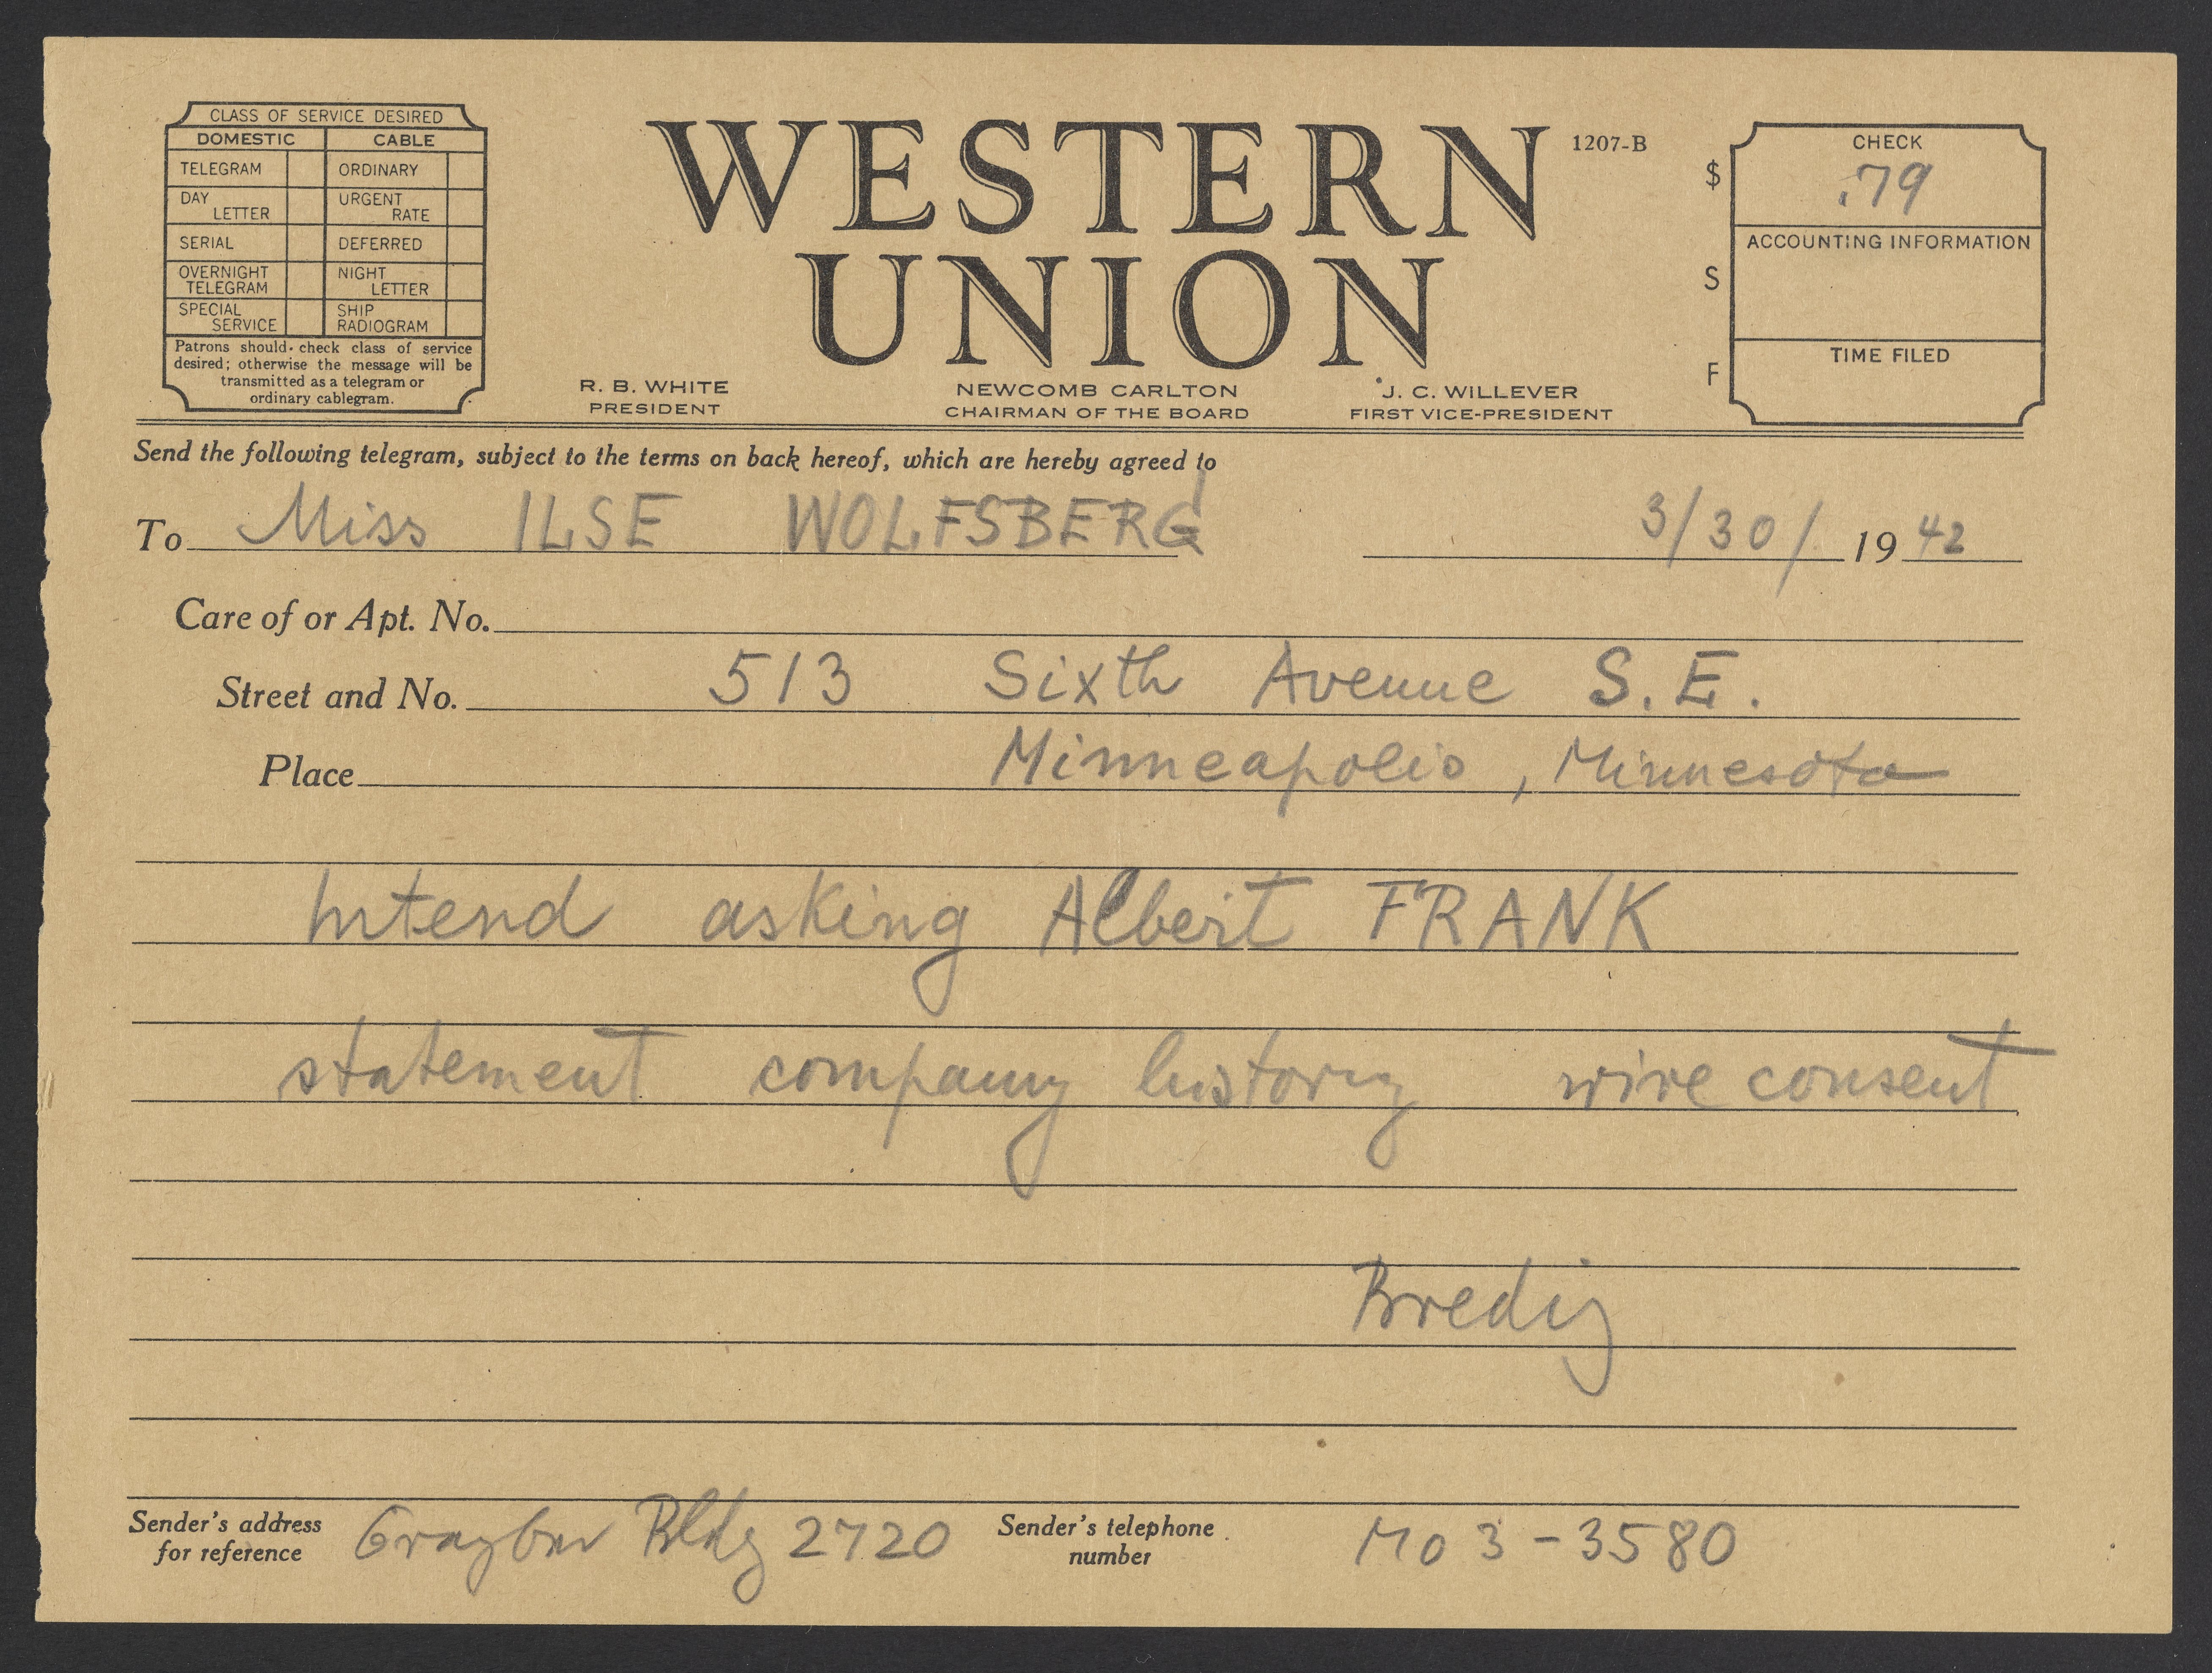 CLASS OF SERVICE DESIRED
DOMESTIC CABLE
TELEGRAM ORDINARY
DAY LETTER URGENT RATE
SERIAL DEFERRED
OVERNIGHT TELEGRAM NIGHT LETTER
SPECIAL SERVICE SHIP RADIOGRAM
Patrons should check class of service
desired; otherwise the message will be
transmitted as a telegram or
ordinary cablegram.
WESTERN
UNION
1207-B
R. B. WHITE
PRESIDENT
NEWCOMB CARLTON
CHAIRMAN OF THE BOARD
J. C. WILLEVER
FIRST VICE-PRESIDENT
$
S
F
CHECK
.79
ACCOUNTING INFORMATION
TIME FILED
Send the following telegram, subject to the terms on back hereof, which are hereby agreed to
To Miss ILSE WOLFSBERG 3/30/ 19 42
Care of or Apt. No.
Street and No. 513 Sixth Avenue S.E.
Place Minneapolis, Minnesota
Intend asking Albert FRANK
statement company history wire consent
Bredig
Sender's address for reference Graybar Bldg 2720 Sender's telephone number MO 3-3580